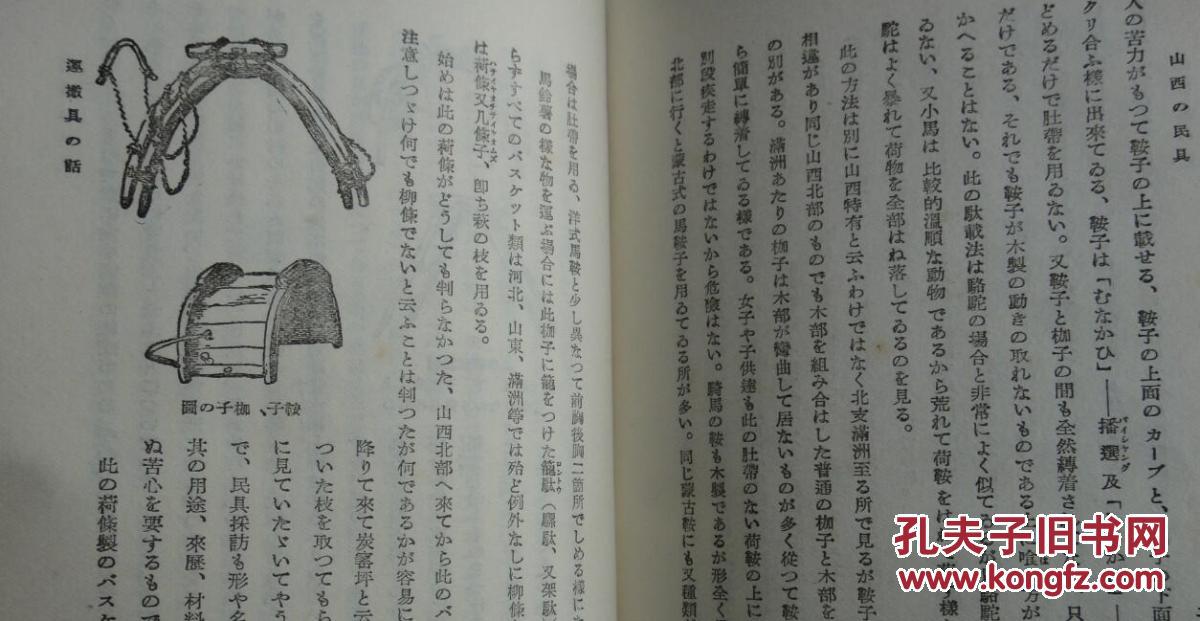 山西の民具
人の苦力がもつて鞍子の上に載せる、鞍子の上面のカーブと、
クリ合ふ樣に出來てゐる、鞍子は「むなかひ」——播選及「
パイシヤンダ
どめるだけで肚帶を用ゐない。又鞍子と枷子の間も全然縛着さ
だけである、それでも鞍子が木製の動きの取れないものである
かへることはない。此の駄載法は駱駝の場合と非常によく似て
ゐない、又小馬は比較的溫順な動物であるから荒れて荷鞍をは
駝はよく暴れて荷物を全部はね落してゐるのを見る。
此の方法は別に山西特有と云ふわけではなく北支滿洲至る所で見るが鞍子
相違があり同じ山西北部のものでも木部を組み合はした普通の枷子と木部を
の別がある。滿洲あたりの枷子は木部が彎曲して居ないものが多く從つて鞍
ら簡單に縛着してゐる樣である。女子や子供達も此の肚帶のない荷鞍の上に
別段疾走するわけではないから危險はない。騎馬の鞍も木製であるが形全く
北部に行くと蒙古式の馬鞍子を用ゐてゐる所が多い。同じ蒙古鞍にも又種類
場合は肚帶を用ゐ、洋式馬鞍と少し異なつて前胸後胸二箇所でしめる樣に
馬鈴薯の樣な物を運ぶ場合には此枷子に籠をつけた籠駄（騾駄、又架駄
ロントウ
らずすべてのバスケット類は河北、山東、滿洲等では殆ど例外なしに柳條
は荷條又几條子、卽ち萩の枝を用ゐる。
始めは此の荷條がどうしても判らなかつた、山西北部へ來てから此のバ
注意しつゝけ何でも柳條でないと云ふことは判つたが何であるかが容易に
降りて來て炭窰坪と云
ついた枝を取つてもら
に見ていたゞいてやう
で、民具採訪も形や名
其の用途、來歷、材料
ぬ苦心を要するもので
此の荷條製のバスケ
鞍子、枷子の圖
運搬具の話
孔夫子旧书网
www.kongfz.com